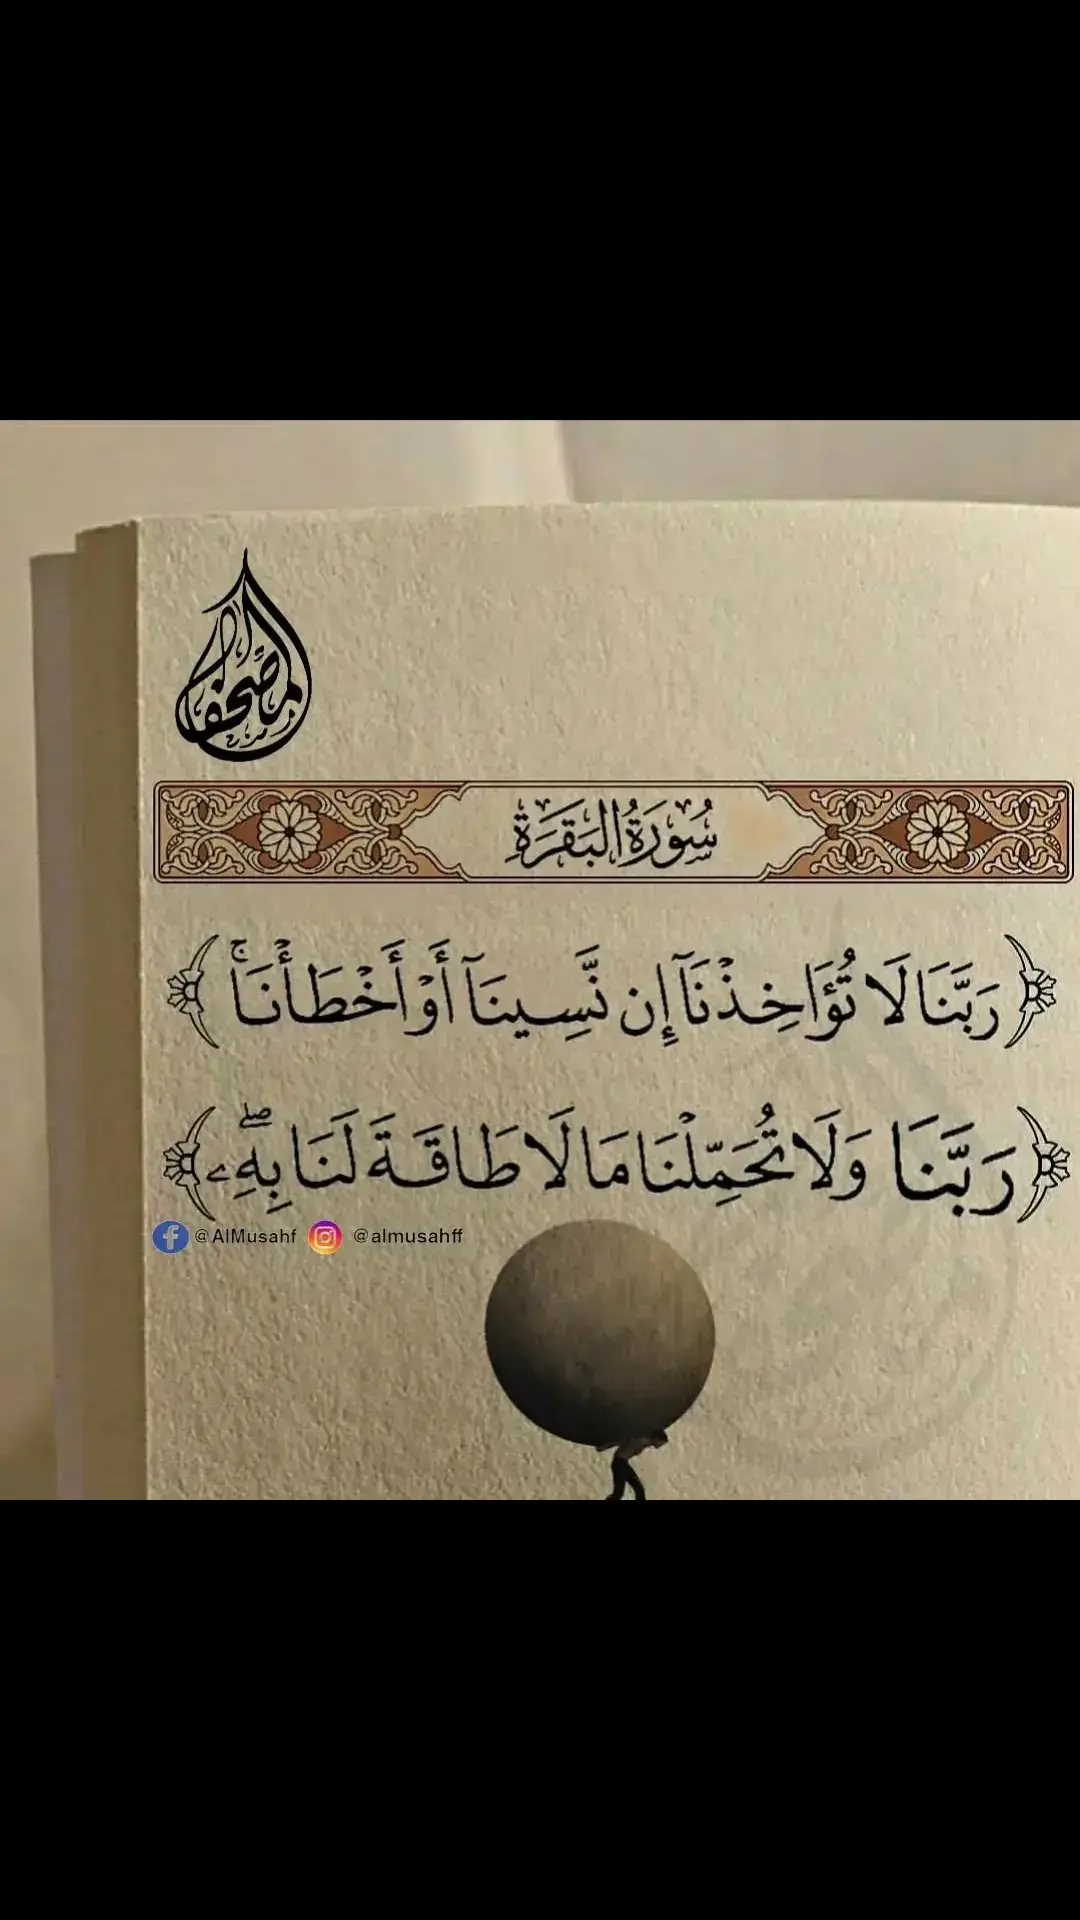 المصحف
سُورَةُ البَقَرَةِ
﴿رَبَّنَا لَا تُؤَاخِذْنَآ إِن نَّسِينَآ أَوْ أَخْطَأْنَاۚ﴾
﴿رَبَّنَا وَلَا تُحَمِّلْنَا مَا لَا طَاقَةَ لَنَا بِهِۦۖ﴾
@AlMusahf @almusahff